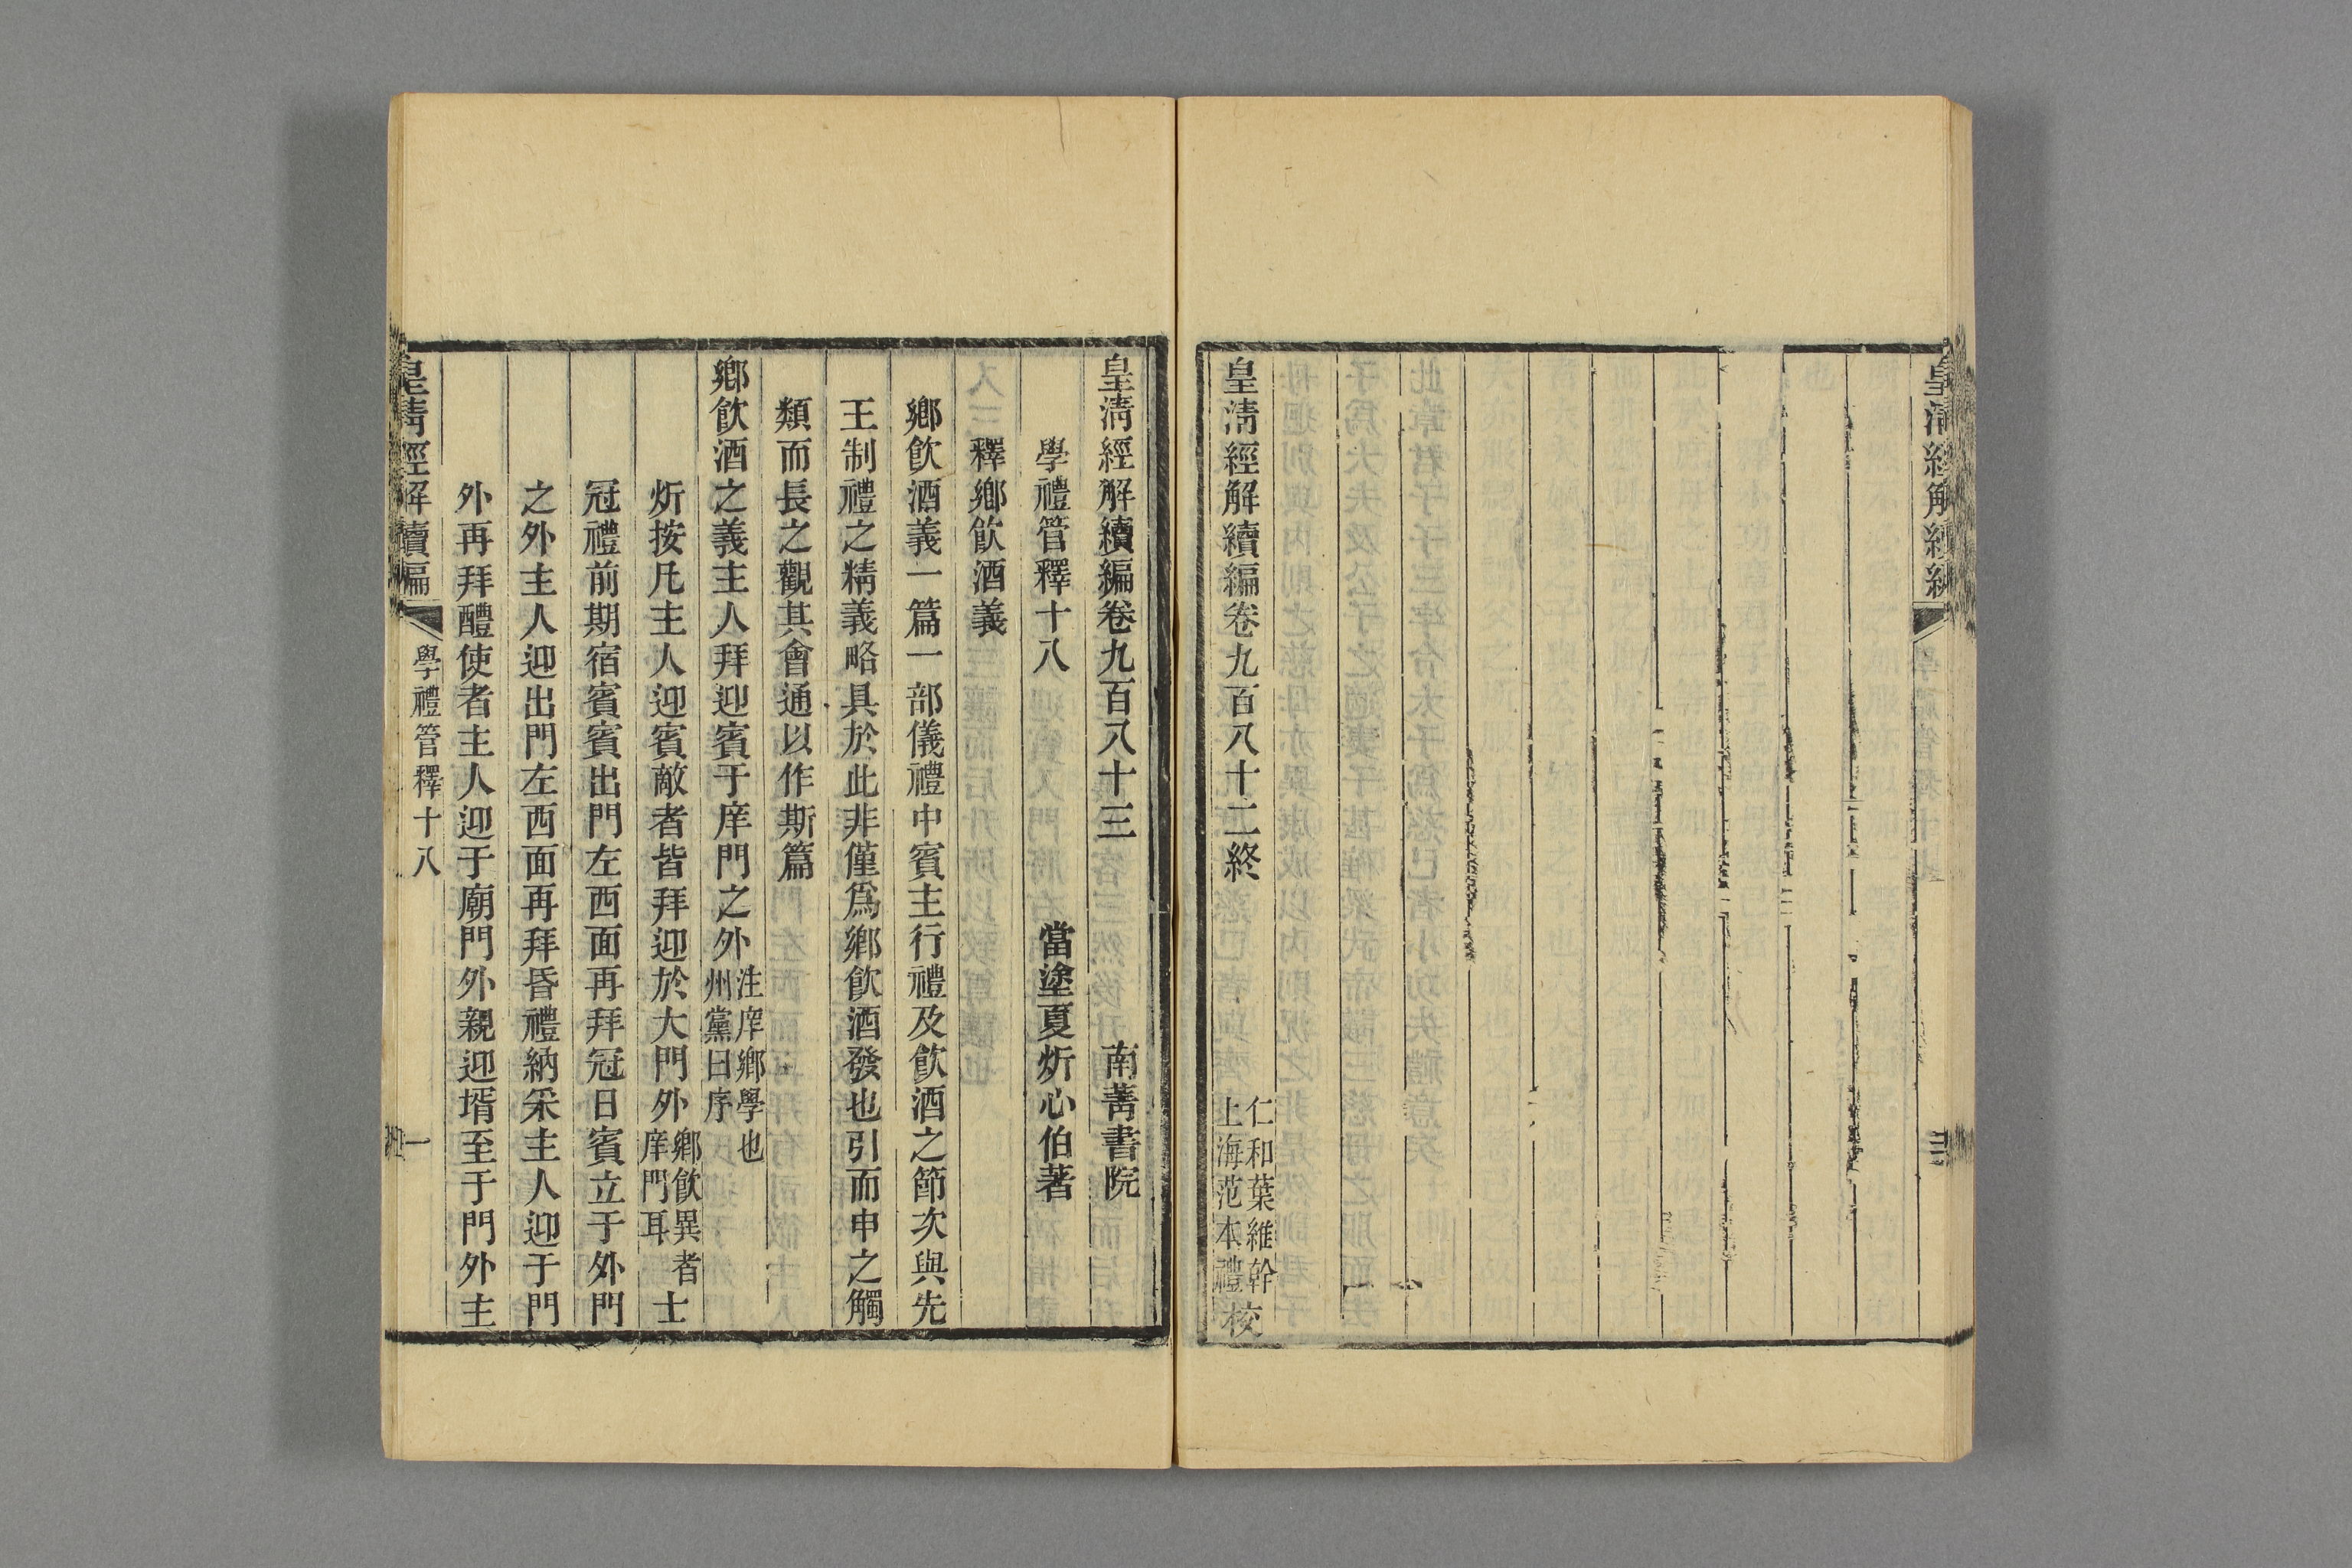 皇清經解續編
皇清經解續編卷九百八十二終
仁和葉維幹
上海范本禮
校
皇清經解續編卷九百八十三
南菁書院
學禮管釋十八
當塗夏炘心伯著
釋鄉飮酒義
鄉飮酒義一篇一部儀禮中賓主行禮及飮酒之節次與先
王制禮之精義略具於此非僅爲鄉飮酒發也引而申之觸
類而長之觀其會通以作斯篇
鄉飮酒之義主人拜迎賓于庠門之外
注庠鄉學也
州黨曰序
炘按凡主人迎賓敵者皆拜迎於大門外
鄉飮異者
庠門耳
士
冠禮前期宿賓賓出門左西面再拜冠日賓立于外門
之外主人迎出門左西面再拜昏禮納采主人迎于門
外再拜醴使者主人迎于廟門外親迎壻至于門外主
皇清經解續編
學禮管釋十八
一